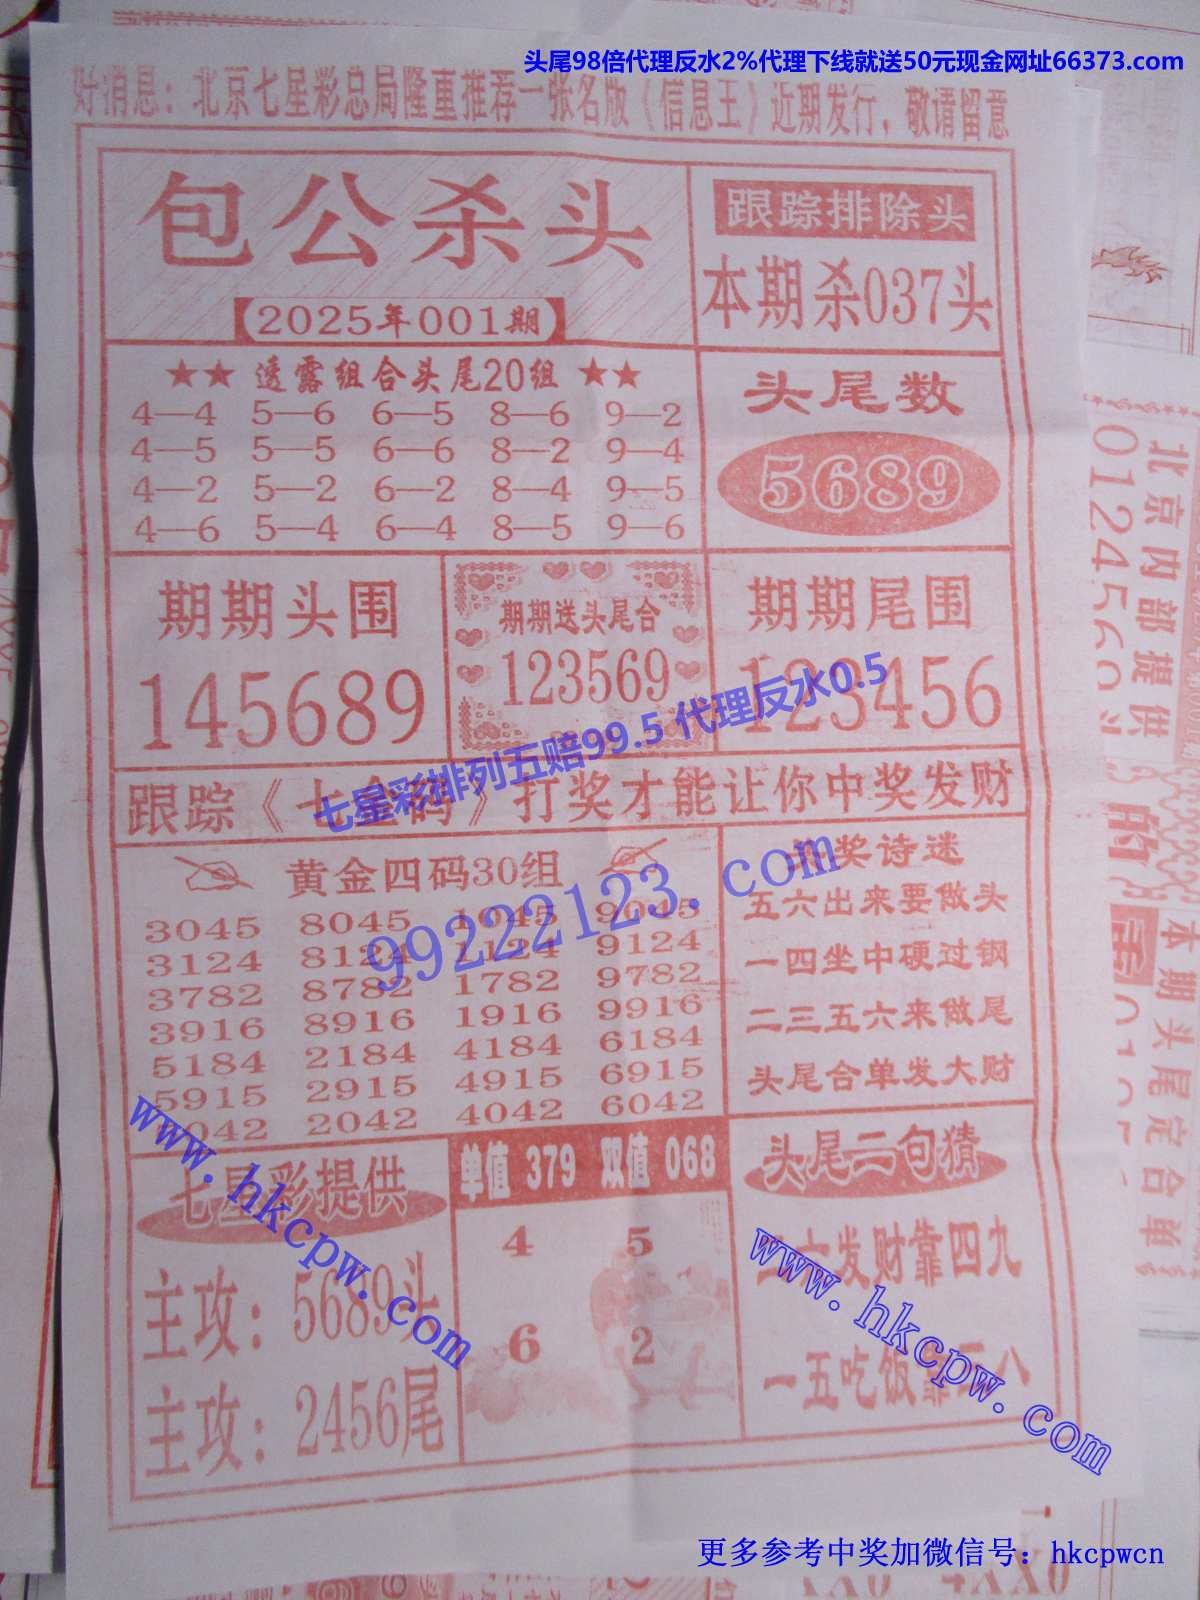 头尾98倍代理反水2%代理下线就送50元现金网址66373.com
好消息：北京七星彩总局隆重推荐一张名版《信息王》近期发行，敬请留意
包公杀头
2025年001期
跟踪排除头
本期杀037头
★★ 透露组合头尾20组 ★★
4—4 5—6 6—5 8—6 9—2
4—5 5—5 6—6 8—2 9—4
4—2 5—2 6—2 8—4 9—5
4—6 5—4 6—4 8—5 9—6
头尾数
5689
期期头围
145689
期期送头尾合
123569
期期尾围
123456
七星彩排列五赔99.5 代理反水0.5
跟踪《七 码》打奖才能让你中奖发财
黄金四码30组
3045 8045 1045 9045
3124 8124 1124 9124
3782 8782 1782 9782
3916 8916 1916 9916
5184 2184 4184 6184
5915 2915 4915 6915
042 2042 4042 6042
99222123.com
奖诗迷
五六出来要做头
一四坐中硬过钢
二三五六来做尾
头尾合单发大财
七星彩提供
主攻：5689头
主攻：2456尾
www.hkcpw.com
单值 379 双值 068
4 5
6 2
头尾二句猜
六发财靠四九
一五吃饭靠 八
www.hkcpw.com
更多参考中奖加微信号：hkcpwcn
北京内部提供
本期头尾定合单